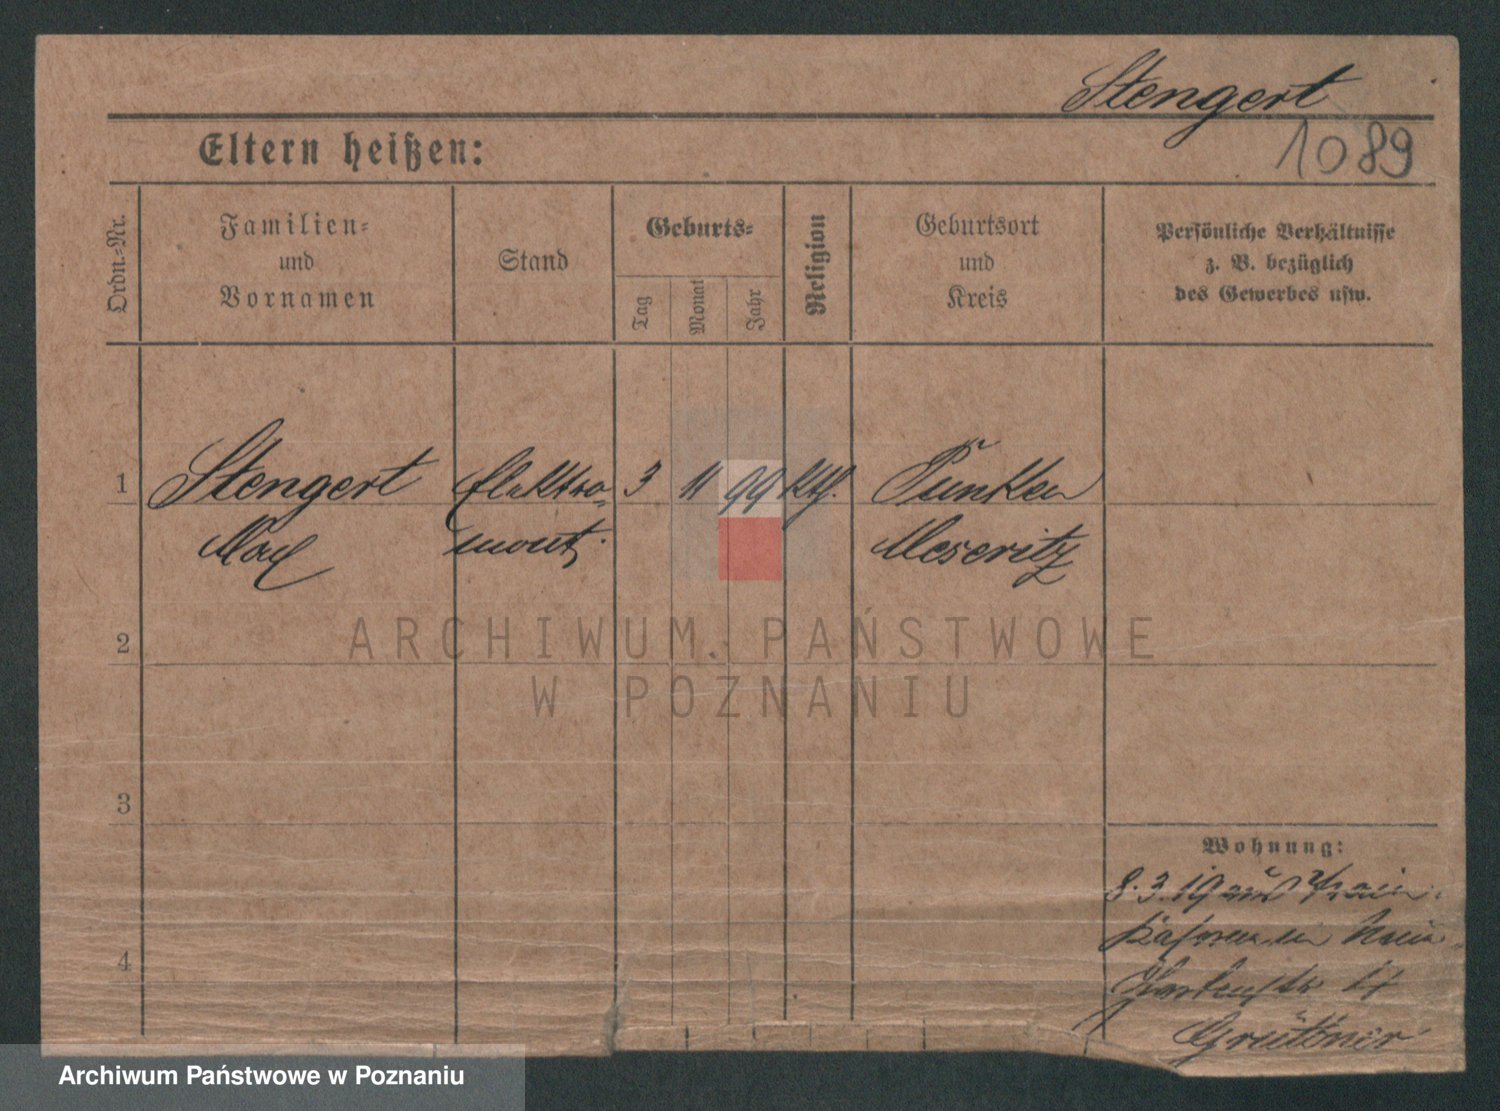 Stengert
1089
Eltern heißen:
Ordn.-Nr.
Familien-
und
Vornamen
Stand
Geburts-
Tag
Monat
Jahr
Religion
Geburtsort
und
Kreis
Persönliche Verhältnisse
z. B. bezüglich
des Gewerbes usw.
1
Stengert
Max
Elektro-
mont.
3
11
99
Kth.
Punken
Meseritz
2
3
4
Wohnung:
8.3.19 aus Train
Kasernen
Gartenstr
Grüttner
ARCHIWUM PAŃSTWOWE
W POZNANIU
Archiwum Państwowe w Poznaniu